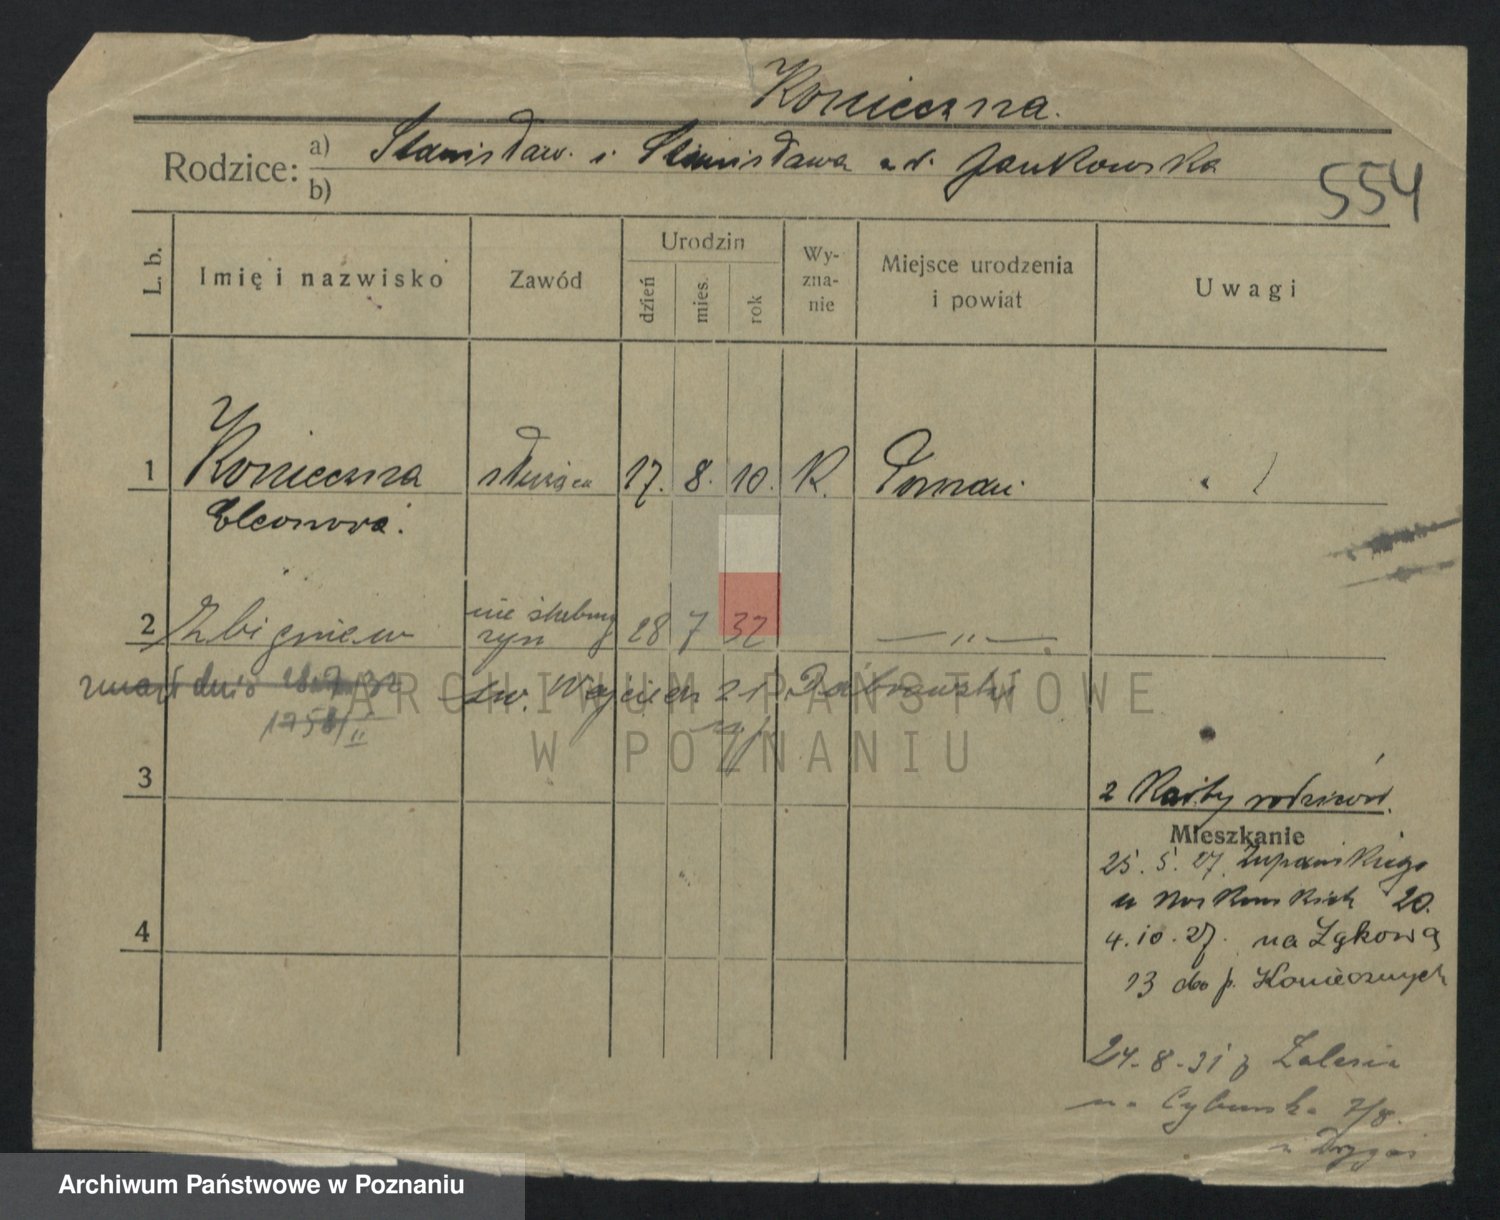 Konieczna.
Rodzice: a) Stanisław. i Stanisława z d. Jankowska
b)
554
L. b.
Imię i nazwisko
Zawód
Urodzin
dzień
mies.
rok
Wy-
zna-
nie
Miejsce urodzenia
i powiat
Uwagi
1 Konieczna służąca 17. 8. 10. K. Poznań
Eleonora.
2 Zbigniew nie ślubny 28 7 32 — " —
syn
zmarł dnia 28.7.32 św. Wojciech 21
1758/II
3
2 Karty rodziców.
Mieszkanie
25. 5. 27. Żupańskiego
u Noskowskich 20.
4
4. 10. 27. na Łąkową
13 do p. Koniecznych
24-8-31 z Zalesia
na Cybińska 7/8.
ARCHIWUM PAŃSTWOWE
W POZNANIU
Archiwum Państwowe w Poznaniu